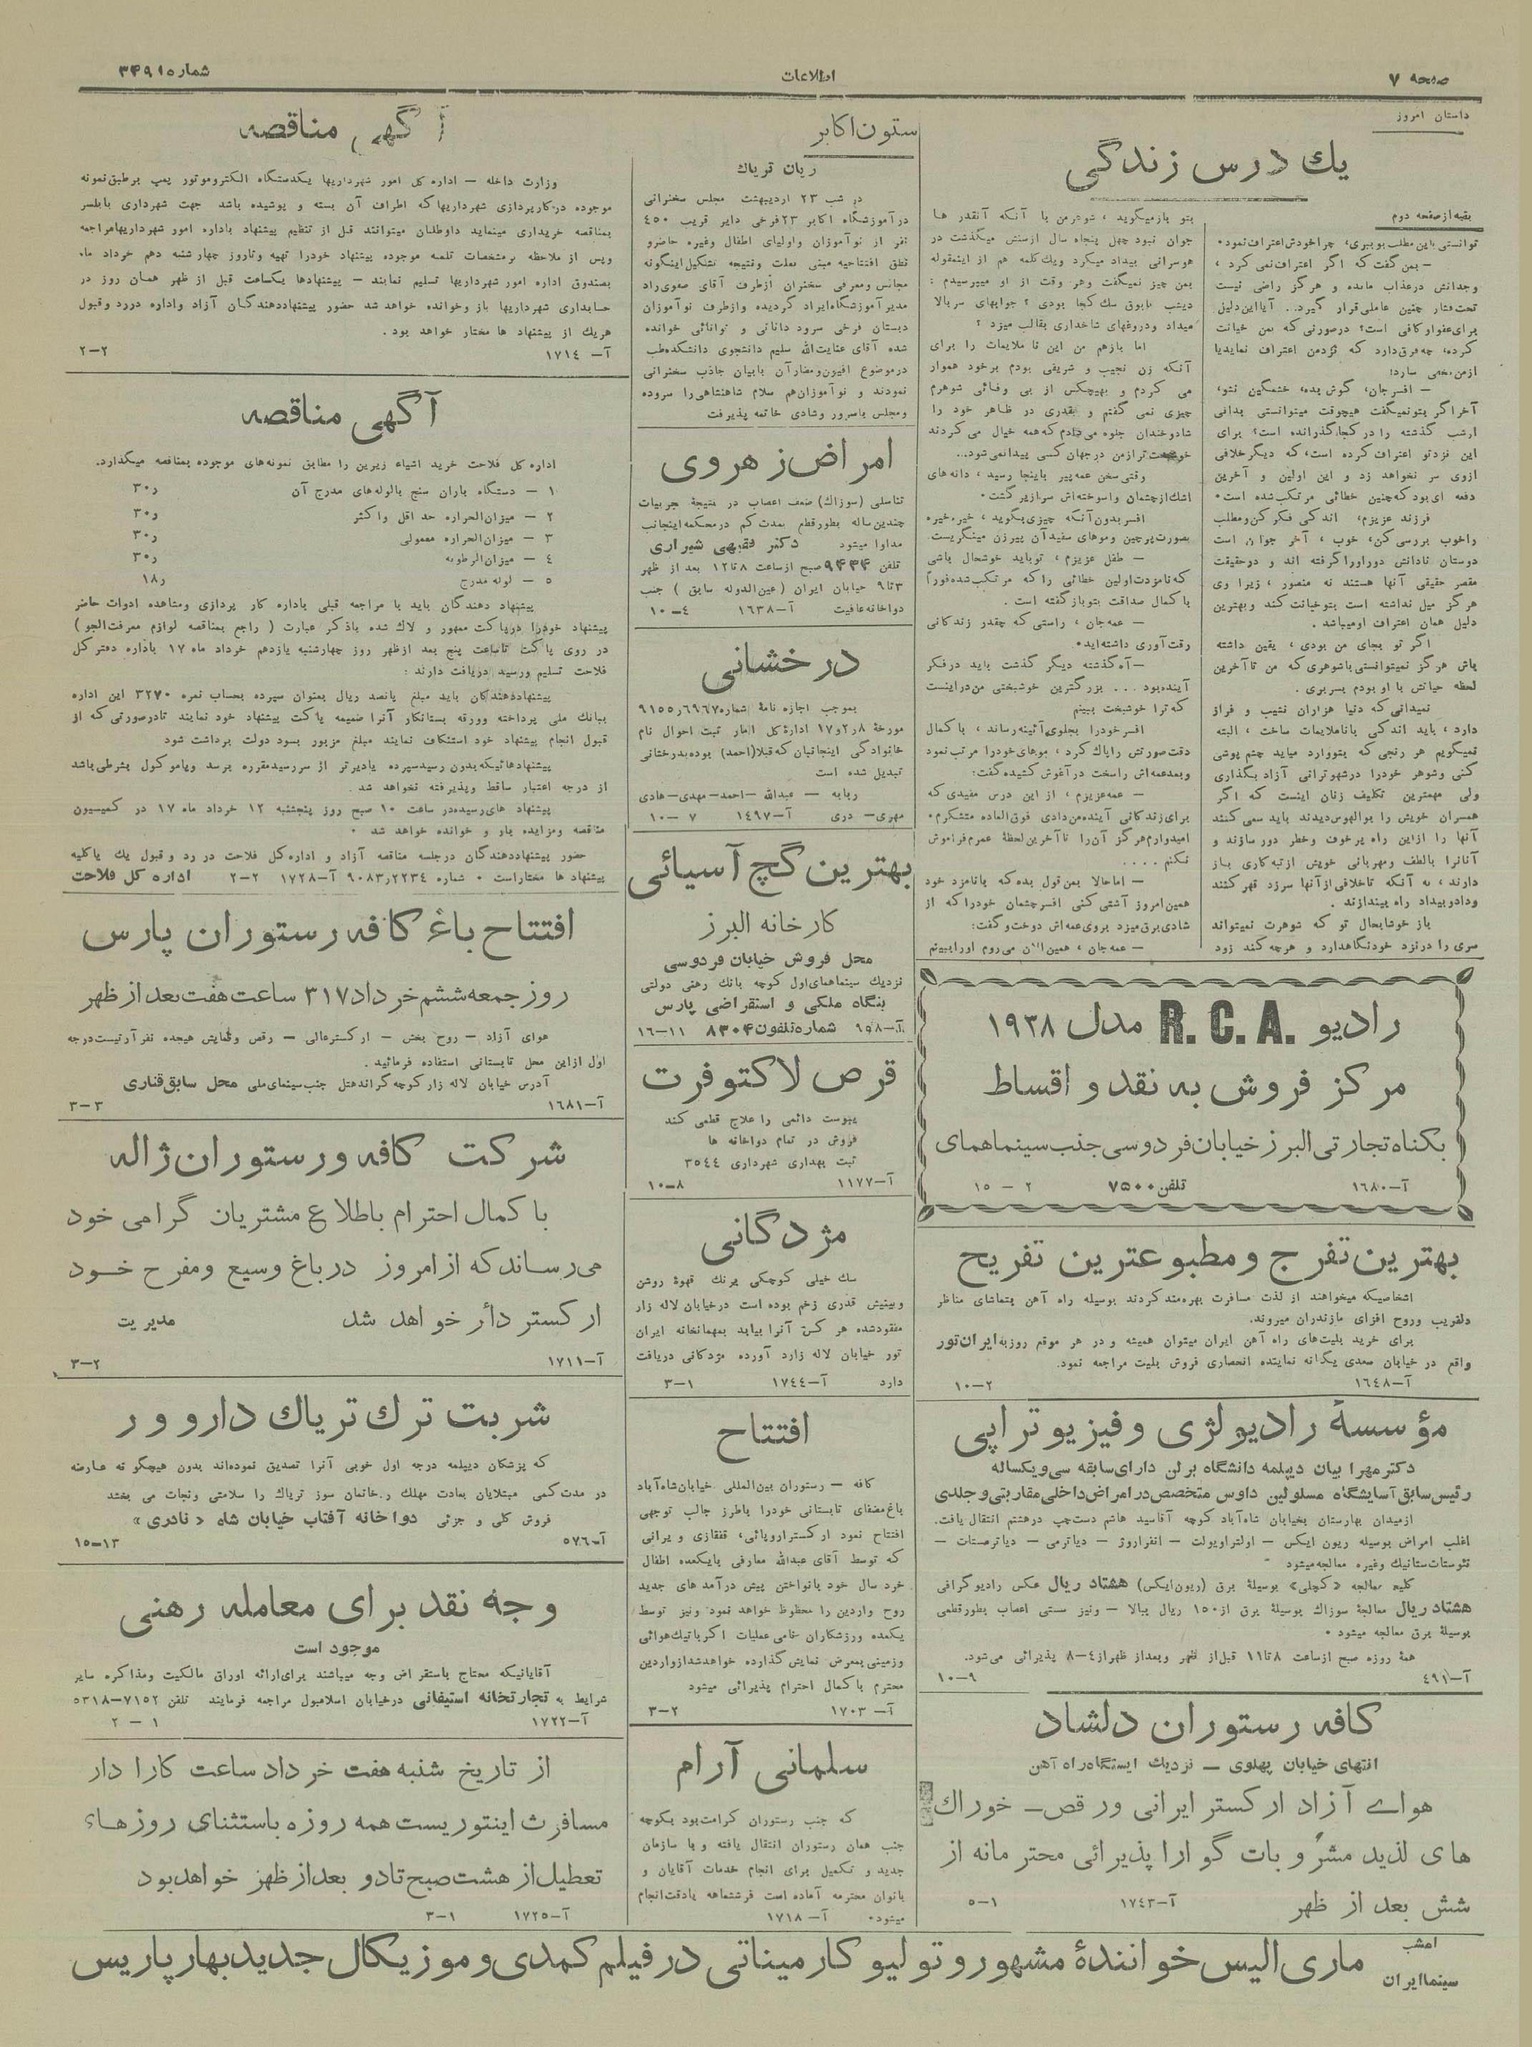 صفحه ۷
اطلاعات
شماره ۳۴۹۱
داستان امروز
یك درس زندگی
بقیه از صفحه دوم
توانستی باین مطلب بوببری، چرا خودش اعتراف نمود؟
— بمن گفت که اگر اعتراف نمی کرد،
وجدانش درعذاب مانده و هرگز راضی نیست
تحت فشار چنین عاملی قرار گیرد.. آیا این دلیل
برای عفو او کافی است؟ درصورتی که بمن خیانت
کرده، چه فرق دارد که نزد من اعتراف نماید یا
ازمن مخفی سازد؛
— افسرجان، گوش بده، خشمگین نشو،
آخر اگر بتو نمیگفت هیچوقت میتوانستی بدانی
ازشب گذشته را در کجا گذرانده است؟ برای
این نزد تو اعتراف کرده است، که دیگر خلافی
ازوی سر نخواهد زد و این اولین و آخرین
دفعه ای بود که چنین خطائی مرتکب شده است.
فرزند عزیزم، اندکی فکر کن و مطلب
را خوب بررسی کن، خوب، آخر جوان است
دوستان نادانش دور او را گرفته اند و در حقیقت
مقصر حقیقی آنها هستند نه منصور، زیرا وی
هرگز میل نداشته است بتو خیانت کند و بهترین
دلیل همان اعتراف او میباشد.
اگر تو بجای من بودی، یقین داشته
باش هرگز نمیتوانستی با شوهری که من تا آخرین
لحظه حیاتش با او بودم بسر بری.
نمیدانی که دنیا هزاران نشیب و فراز
دارد، باید اندکی با ناملایمات ساخت، البته
نمیگویم هر رنجی که بتو وارد میاید چشم پوشی
کنی وشوهر خودرا درشهوترانی آزاد بگذاری
ولی مهمترین تکلیف زنان اینست که اگر
همسران خویش را بوالهوس دیدند باید سعی کنند
آنها را ازاین راه پرخوف وخطر دور سازند و
آنانرا بالطف ومهربانی خویش ازتبه کاری باز
دارند، نه آنکه تا خلافی از آنها سرزد قهر کنند
و داد و بیداد راه بیندازند.
باز خوشا بحال تو که شوهرت نمیتواند
سری را درنزد خود نگاهدارد و هرچه کند زود
بتو بازمیگوید، شوهر من با آنکه آنقدر ها
جوان نبود چهل پنجاه سال از سنش میگذشت در
هوسرانی بیداد میکرد ویك کلمه هم از اینمقوله
بمن چیز نمیگفت وهر وقت از او میپرسیدم:
دیشب تا بوق سك کجا بودی؟ جوابهای سر بالا
میداد و دروغهای شاخداری بقالب میزد؟
اما بازهم من این نا ملایمات را برای
آنکه زن نجیب و شریفی بودم بر خود هموار
می کردم و بهیچکس از بی وفائی شوهرم
چیزی نمی گفتم و بقدری در ظاهر خود را
شاد و خندان جلوه میدادم که همه خیال می کردند
خوشبخت تر از من در جهان کسی پیدا نمی شود...
وقتی سخن عمه پیر باینجا رسید، دانه های
اشك از چشمان واسوخته اش سرازیر گشت.
افسر بدون آنکه چیزی بگوید، خیره خیره
بصورت پرچین وموهای سفید آن پیرزن مینگریست.
— طفل عزیزم، تو باید خوشحال باشی
که نامزدت اولین خطائی را که مرتکب شده فوراً
با کمال صداقت بتو بازگفته است.
— عمه جان، راستی که چقدر زندگانی
رقت آوری داشته اید.
— آه گذشته دیگر گذشت باید در فکر
آینده بود... بزرگترین خوشبختی من در اینست
که ترا خوشبخت ببینم
افسر خودرا بجلوی آئینه رساند، با کمال
دقت صورتش را پاك کرد، موهای خودرا مرتب نمود
و بعد عمه اش را سخت در آغوش کشیده گفت:
— عمه عزیزم، از این درس مفیدی که
برای زندگانی آینده من دادی فوق العاده متشکرم.
امیدوارم هرگز آن را تا آخرین لحظهٔ عمرم فراموش
نکنم....
— اما حالا بمن قول بده که با نامزد خود
همین امروز آشتی کنی افسر چشمان خودرا که از
شادی برق میزد بروی عمه اش دوخت و گفت:
— عمه جان، همین الان می روم او را ببینم
رادیو R. C. A. مدل ۱۹۳۸
مرکز فروش به نقد و اقساط
بنگاه تجارتی البرز خیابان فردوسی جنب سینما همای
آ—۱۶۸۰ تلفن ۷۵۰۰ ۲ — ۱۵
بهترین تفرج و مطبوعترین تفریح
اشخاصیکه میخواهند از لذت مسافرت بهره مند گردند بوسیله راه آهن بتماشای مناظر
دلفریب و روح افزای مازندران میروند.
برای خرید بلیت های راه آهن ایران میتوان همیشه و در هر موقع روز به ایران تور
واقع در خیابان سعدی یگانه نماینده انحصاری فروش بلیت مراجعه نمود.
آ—۱۶۴۸ ۲—۱۰
مؤسسهٔ رادیولژی و فیزیوتراپی
دکتر مهرا بیان دیپلمه دانشگاه برلن دارای سابقه سی و یکساله
رئیس سابق آسایشگاه مسلولین داوس متخصص در امراض داخلی مقاربتی و جلدی
ازمیدان بهارستان بخیابان شاه آباد کوچه آقاسید هاشم دست چپ در هشتم انتقال یافت.
اغلب امراض بوسیله ریون ایکس — اولترا ویولت — انفراروژ — دیاترمی — دیاترمستات —
نئوستات ستاتیك وغیره معالجه میشود
کلیه معالجه «کچلی» بوسیلهٔ برق (ریون ایکس) هشتاد ریال عکس رادیو گرافی
هشتاد ریال معالجهٔ سوزاك بوسیلهٔ برق از ۱۵۰ ریال ببالا — ونیز سستی اعصاب بطور قطعی
بوسیلهٔ برق معالجه میشود.
همهٔ روزه صبح ازساعت ۸ تا ۱۱ قبل از ظهر وبعد از ظهر از ۴—۸ پذیرائی می شود.
آ—۴۹۱ ۹—۱۰
کافه رستوران دلشاد
انتهای خیابان پهلوی — نزدیك ایستگاه راه آهن
هوای آزاد ارکستر ایرانی و رقص — خوراك
های لذید مشروبات گوارا پذیرائی محترمانه از
شش بعد از ظهر آ—۱۷۴۳ ۱—۵
ستون اکابر
زیان تریاك
در شب ۲۳ اردیبهشت مجلس سخنرانی
در آموزشگاه اکابر ۲۳ فرخی دایر قریب ۴۵۰
نفر از نوآموزان واولیای اطفال وغیره حاضر و
نطق افتتاحیه مبنی بعلت ونتیجه تشکیل اینگونه
مجالس ومعرفی سخنران ازطرف آقای صفوی راد
مدیر آموزشگاه ایراد گردیده و ازطرف نوآموزان
دبستان فرخی سرود دانائی و توانائی خوانده
شده آقای عنایت الله سلیم دانشجوی دانشکده طب
درموضوع افیون ومضار آن با بیان جاذب سخنرانی
نمودند و نوآموزان هم سلام شاهنشاهی را سروده
ومجلس باسرور وشادی خاتمه پذیرفت
امراض زهروی
تناسلی (سوزاك) ضعف اعصاب در نتیجهٔ جربیات
چندین ساله بطور قطع بمدت کم در محکمه اینجانب
مداوا میشود دکتر فقیهی شیرازی
تلفن ۹۴۳۴ صبح از ساعت ۸ تا ۱۲ بعد از ظهر
۳ تا ۹ خیابان ایران (عین الدوله سابق) جنب
دواخانه عافیت آ—۱۶۳۸ ۴—۱۰
درخشانی
بموجب اجازه نامهٔ شماره ۶۹۶۷ر۹۱۵۵
مورخهٔ ۸ر۲و۱۷ ادارهٔ کل آمار ثبت احوال نام
خانوادگی اینجانبان که قبلا (احمد) بوده بدرخشانی
تبدیل شده است
ربابه — عبدالله — احمد — مهدی — هادی
مهری — دری آ—۱۴۹۷ ۷—۱۰
بهترین گچ آسیائی
کارخانه البرز
محل فروش خیابان فردوسی
نزدیك سینما همای اول کوچه بانك رهنی دولتی
بنگاه ملکی و استقراضی پارس
آ—۹۵۸ شماره تلفون ۸۳۰۴ ۱۱—۱۶
قرص لاکتوفرت
یبوست دائمی را علاج قطعی کند
فروش در تمام دواخانه ها
ثبت بهداری شهرداری ۳۵۴۴
آ—۱۱۷۷ ۸—۱۰
مژدگانی
سك خیلی کوچکی برنك قهوهٔ روشن
و بینیش قدری زخم بوده است در خیابان لاله زار
مفقود شده هر کس آنرا بیابد بمهمانخانه ایران
تور خیابان لاله زار د آورده مژدگانی دریافت
دارد آ—۱۷۴۴ ۱—۳
افتتاح
کافه — رستوران بین المللی خیابان شاه آباد
باغ مصفای تابستانی خودرا باطرز جالب توجهی
افتتاح نمود ارکستر اروپائی، قفقازی و یرانی
که توسط آقای عبدالله معارفی با یکعده اطفال
خرد سال خود با نواختن پیش درآمد های جدید
روح واردین را محظوظ خواهد نمود ونیز توسط
یکعده ورزشکاران نامی عملیات اکرباتیك هوائی
و زمینی بمعرض نمایش گذارده خواهد شد از واردین
محترم با کمال احترام پذیرائی میشود
آ—۱۷۰۳ ۲—۳
سلمانی آرام
که جنب رستوران کرامت بود بکوچه
جنب همان رستوران انتقال یافته و با سازمان
جدید و تکمیل برای انجام خدمات آقایان و
بانوان محترمه آماده است فرششماهه بادقت انجام
میشود. آ—۱۷۱۸
آگهی مناقصه
وزارت داخله — اداره کل امور شهرداریها یکدستگاه الکتروموتور پمپ برطبق نمونه
موجوده در کار پردازی شهرداریها که اطراف آن بسته و پوشیده باشد جهت شهرداری بابلسر
بمناقصه خریداری مینماید داوطلبان میتوانند قبل از تنظیم پیشنهاد باداره امور شهرداریها مراجعه
وپس از ملاحظه برمشخصات تلمبه موجوده پیشنهاد خودرا تهیه وتا روز چهارشنبه دهم خرداد ماه
بصندوق اداره امور شهرداریها تسلیم نمایند — پیشنهادها یکساعت قبل از ظهر همان روز در
حسابداری شهرداریها باز و خوانده خواهد شد حضور پیشنهاد دهندگان آزاد واداره در رد وقبول
هریك از پیشنهاد ها مختار خواهد بود.
آ—۱۷۱۴ ۲—۲
آگهی مناقصه
اداره کل فلاحت خرید اشیاء زیرین را مطابق نمونه های موجوده بمناقصه میگذارد.
۱ — دستگاه باران سنج بالوله های مدرج آن ۳۰ر
۲ — میزان الحراره حد اقل واکثر ۳۰ر
۳ — میزان الحراره معمولی ۳۰ر
۴ — میزان الرطوبه ۳۰ر
۵ — لوله مدرج ۱۸ر
پیشنهاد دهندگان باید با مراجعه قبلی باداره کار پردازی ومشاهده ادوات حاضر
پیشنهاد خودرا درپاکت ممهور و لاك شده باذکر عبارت (راجع بمناقصه لوازم معرفت الجو)
در روی پاکت تاساعت پنج بعد ازظهر روز چهارشنبه یازدهم خرداد ماه ۱۷ باداره دفتر کل
فلاحت تسلیم ورسید دریافت دارند:
پیشنهاد دهندگان باید مبلغ پانصد ریال بعنوان سپرده بحساب نمره ۳۲۷۰ این اداره
ببانك ملی پرداخته و ورقه بستانکار آنرا ضمیمه پاکت پیشنهاد خود نمایند تا درصورتی که از
قبول انجام پیشنهاد خود استنکاف نمایند مبلغ مزبور بسود دولت برداشت شود
پیشنهادهائیکه بدون رسید سپرده یا دیرتر از سررسید مقرره برسد ویا موکول بشرطی باشد
از درجه اعتبار ساقط و پذیرفته نخواهد شد.
پیشنهاد های رسیده در ساعت ۱۰ صبح روز پنجشنبه ۱۲ خرداد ماه ۱۷ در کمیسیون
مناقصه ومزایده باز و خوانده خواهد شد.
حضور پیشنهاد دهندگان درجلسه مناقصه آزاد و اداره کل فلاحت در رد و قبول یك یا کلیه
پیشنهاد ها مختار است. شماره ۹۰۸۳ر۲۲۳۴ آ—۱۷۲۸ ۲—۲ اداره کل فلاحت
افتتاح باغ کافه رستوران پارس
روز جمعه ششم خرداد ۳۱۷ ساعت هفت بعد از ظهر
هوای آزاد — روح بخش — ارکسترعالی — رقص و نمایش هیجده نفر آرتیست درجه
اول از این محل تابستانی استفاده فرمائید.
آدرس خیابان لاله زار کوچه گراند هتل جنب سینمای ملی محل سابق قناری
آ—۱۶۸۱ ۳—۳
شرکت کافه و رستوران ژاله
با کمال احترام باطلاع مشتریان گرامی خود
می رساند که از امروز در باغ وسیع و مفرح خود
ارکستر دائر خواهد شد مدیریت
آ—۱۷۱۱ ۲—۳
شربت ترك تریاك دارو ور
که پزشکان دیپلمه درجه اول خوبی آنرا تصدیق نموده اند بدون هیچگونه عارضه
در مدت کمی مبتلایان بعادت مهلك و خانمان سوز تریاك را سلامتی ونجات می بخشد
فروش کلی و جزئی دواخانه آفتاب خیابان شاه «نادری»
آ—۵۷۶ ۱۳—۱۵
وجه نقد برای معامله رهنی
موجود است
آقایانیکه محتاج باستقراض وجه میباشند برای ارائه اوراق مالکیت ومذاکره سایر
شرایط به تجارتخانه استیفانی در خیابان اسلامبول مراجعه فرمایند تلفن ۷۱۵۲—۵۳۱۸
آ—۱۷۲۲ ۱ — ۲
از تاریخ شنبه هفت خرداد ساعت کار ادار
مسافرت اینتوریست همه روزه باستثنای روزهای
تعطیل از هشت صبح تا دو بعد از ظهر خواهد بود
آ—۱۷۲۵ ۱—۳
امشب
سینما ایران
ماری الیس خوانندهٔ مشهور و تولیو کارمیناتی در فیلم کمدی و موزیکال جدید بهار پاریس